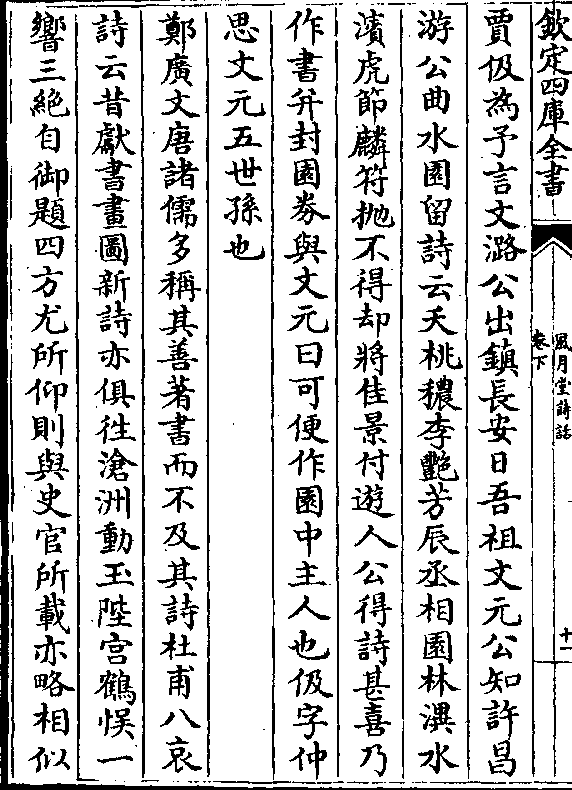 欽定四庫全書
風月堂詩話
卷下
十一
賈伋為予言文潞公出鎮長安日吾祖文元公知許昌
游公曲水園留詩云夭桃穠李艷芳辰丞相園林潩水
濱虎節麟符抛不得却將佳景付遊人公得詩甚喜乃
作書并封園券與文元曰可便作園中主人也伋字仲
思文元五世孫也
鄭廣文唐諸儒多稱其善著書而不及其詩杜甫八哀
詩云昔獻書畫圖新詩亦俱往滄洲動玉陛宫鶴悞一
響三絶自御題四方尤所仰則與史官所載亦略相似